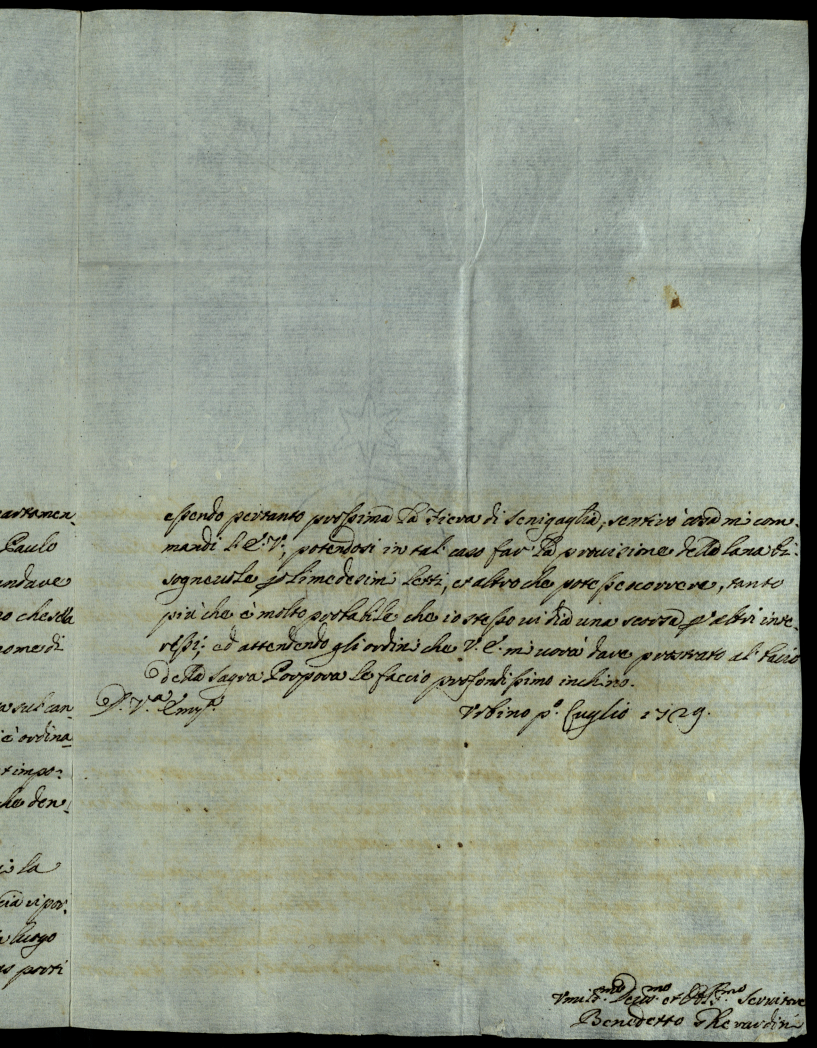 artamen
Paulo
andare
o che sella
nome di
a sul can
è ordina
et impo-
che den
i la
cia ripor
luogo
proti
essendo pertanto prossima la Fiera di Senigaglia, sentirò cosa mi com-
mandi l'E. V., potendosi in tal caso far la provisione della lana bi-
sognevole p li medesimi Letti, et altro che potesse occorrere, tanto
più che è molto probabile che io stesso vi dia una scorsa p altri inte-
ressi; ed attendendo gli ordini che V. E. mi vorrà dare prostrato al bacio
della Sagra Porpora le faccio profondissimo inchino.
D. V.a Em.za
Urbino p.o Luglio 1729.
Umil.mo Dev.mo et Obl.mo Servitore
Benedetto Gherardini